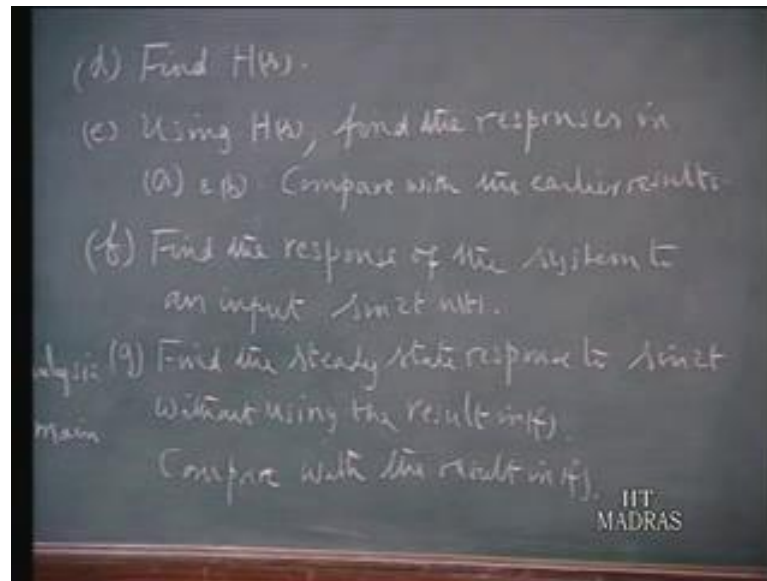 (d) Find H(s).
(e) Using H(s), find the responses in
(a) & (b) Compare with the earlier results.
(f) Find the response of the system to
an input sin2t u(t).
(g) Find the steady state response to sin2t
without using the result in (f).
Compare with the result in (f).
main
IIT
MADRAS